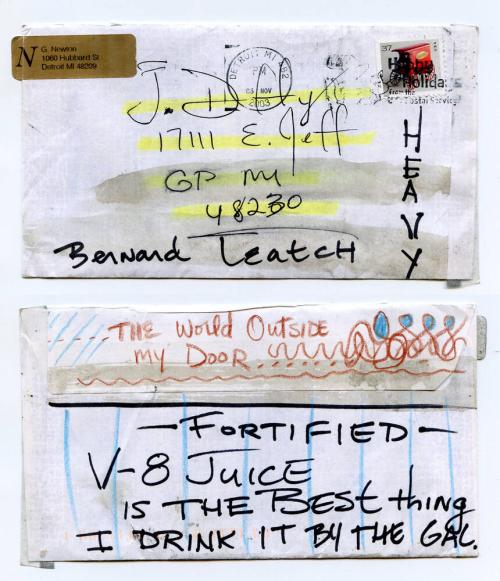 N
G. Newton
1060 Hubbard St
Detroit MI 48209
DETROIT MI 482
PM
NOV
2003
37
Holiday
from the
U.S. Postal Service
17111 E. Jeff
GP MI
48230
HEAVY
Bernard Leatch
THE World OUTSIDE
my DooR
—FORTIFIED—
V-8 JUICE
IS THE BEST thing
I DRINK IT BY THE GAL.